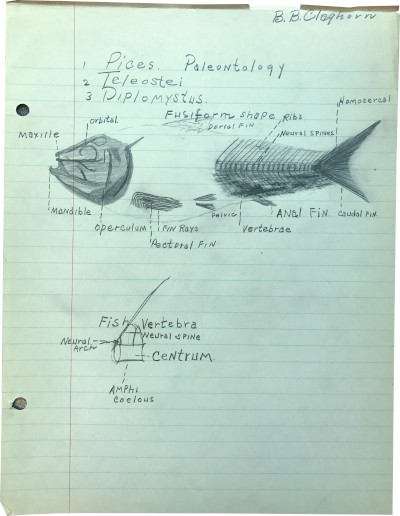 B.B. Claghorn
1 Pices. Paleontology
2 Teleostei
3 Diplomystus.
Homocercal
Fusiform shape
Ribs
orbital
Dorsal Fin
Maxille
Neural Spines
Mandible
Pelvic
Anal Fin
Caudal Fin
operculum
Fin Rays
Vertebrae
Pectoral Fin
Fish Vertebra
Neural spine
Neural Arch
Centrum.
Amphi
Coelous